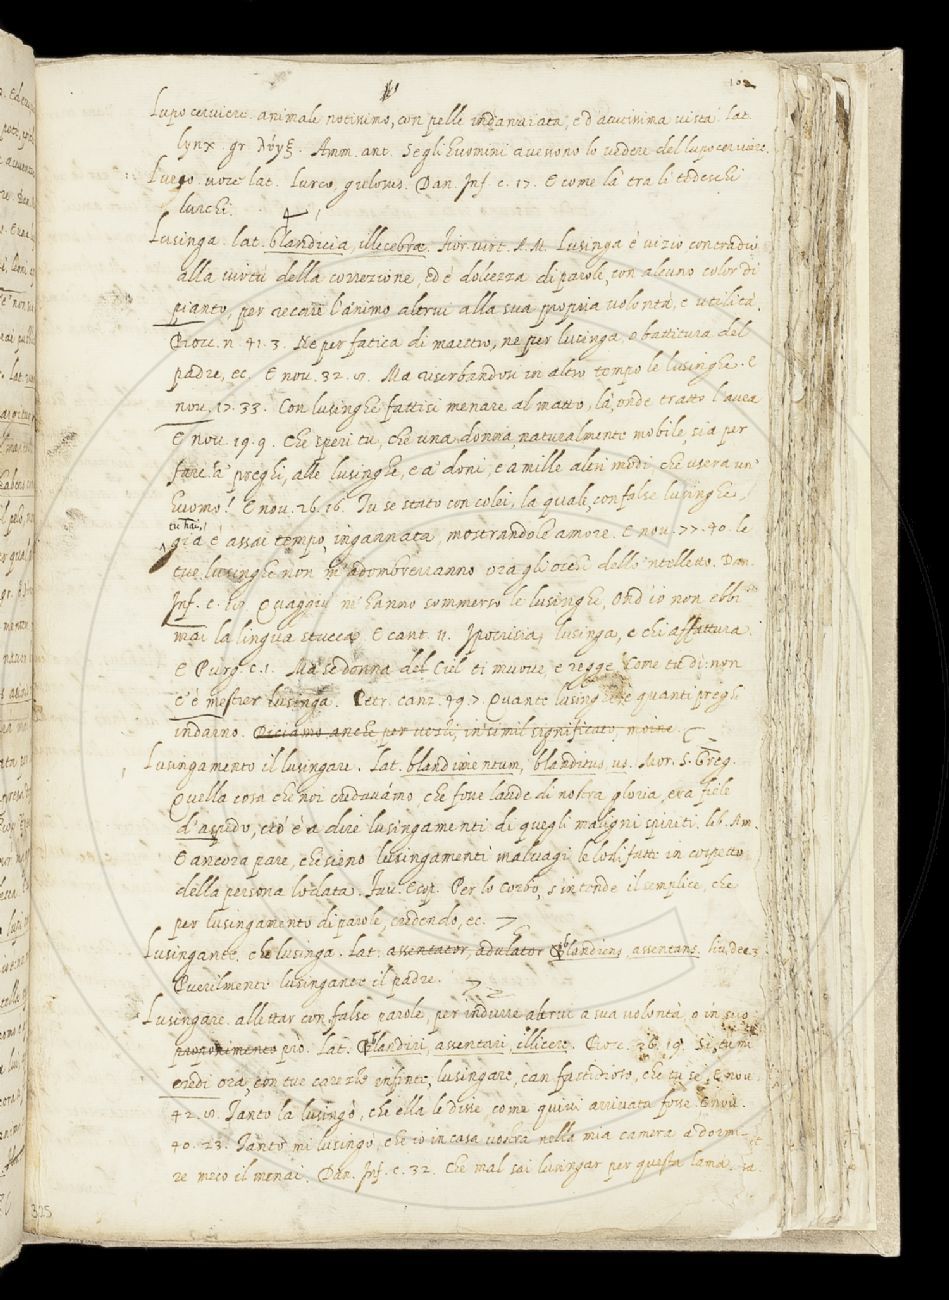 102
Lupo cerviere. animale notissimo, con pelle indanaiata, ed acutissima vista. Lat.
lynx. gr. λύγξ. Amm. ant. Se gli huomini avessono lo vedere del lupo cerviere.
Lurco. voce lat. Lurco, gulosus. Dan. Inf. c. 17. E come là tra li tedeschi
lurchi.
Lusinga. lat. blandicia, illecebræ. Fior. virt. A. M. Lusinga è vizio contradio
alla virtù della correzione, ed è dolcezza di parole, con alcuno color di
pianto, per recare l'animo altrui alla sua propria volontà, e utilità.
Bocc. n. 41. 3. Ne per fatica di maestro, ne per lusinga, o battitura del
padre, ec. E nov. 32. Ma riserbandosi in altro tempo le lusinghe. E
nov. 17. 33. Con lusinghe fattisi menare al matto, là, onde tratto l'avea
E nov. 19. 9. Che speri tu, che una donna, naturalmente mobile, sia per
fare a' preghi, alle lusinghe, e a' doni, e a mille altri modi, che userà un
huomo! E nov. 26. 16. Tu se stato con colei, la quale, con false lusinghe,
tu hai,
già è assai tempo, ingannata, mostrandole amore. E nov. 77. 40. le
tue lusinghe non m'adombreranno ora gli occhi dello 'ntelletto. Dan.
Inf. c. 18. Quaggiù m'hanno sommerso le lusinghe, Ond'io non ebbi
mai la lingua stucca. E cant. 11. Ipocrisia, lusinga, e chi affattura.
E Purg. c. 1. Ma se donna del Ciel ti muove, e regge, Come tu di, non
c'è mestier lusinga. Petr. canz. 49. 7. Quante lusinghe e quanti preghi
indarno. Diciamo anche, per vezzi, in simil significato, moine.
Lusingamento il lusingare. Lat. blandimentum, blanditus, us. Mor. S. Greg.
Quella cosa che noi credavámo, che fosse laude di nostra gloria, era fiele
d'aspido, ciò è a dire lusingamenti di quegli maligni spiriti. lib. Am.
E ancora pare, che sieno lusingamenti malvagi le lodi fatte in cospetto
della persona lodata. Fav. Esop. Per lo Corbo, s'intende il semplice, che
per lusingamento di parole, credendo, ec.
Lusingante. che lusinga. Lat. assentator, adulator blandiens, assentans. liv. dec. 3
Puerilmente lusingante il padre.
Lusingare. allettar con false parole, per indurre altrui a sua volontà, o in suo
proponimento pro. Lat. blandiri, assentari, illicere. Bocc. 26. 19. Se, tu mi
credi ora, con tue carezze infinte, lusingare, can fastidioso, che tu se'. E nov.
42. Tanto la lusingò, che ella le disse, come quivi arrivata fosse. E nov.
40. 23. Tanto mi lusingò, che io in casa vostra nella mia camera a dormi-
re meco il menai. Dan. Inf. c. 32. Che mal sai lusingar per questa lama.
325